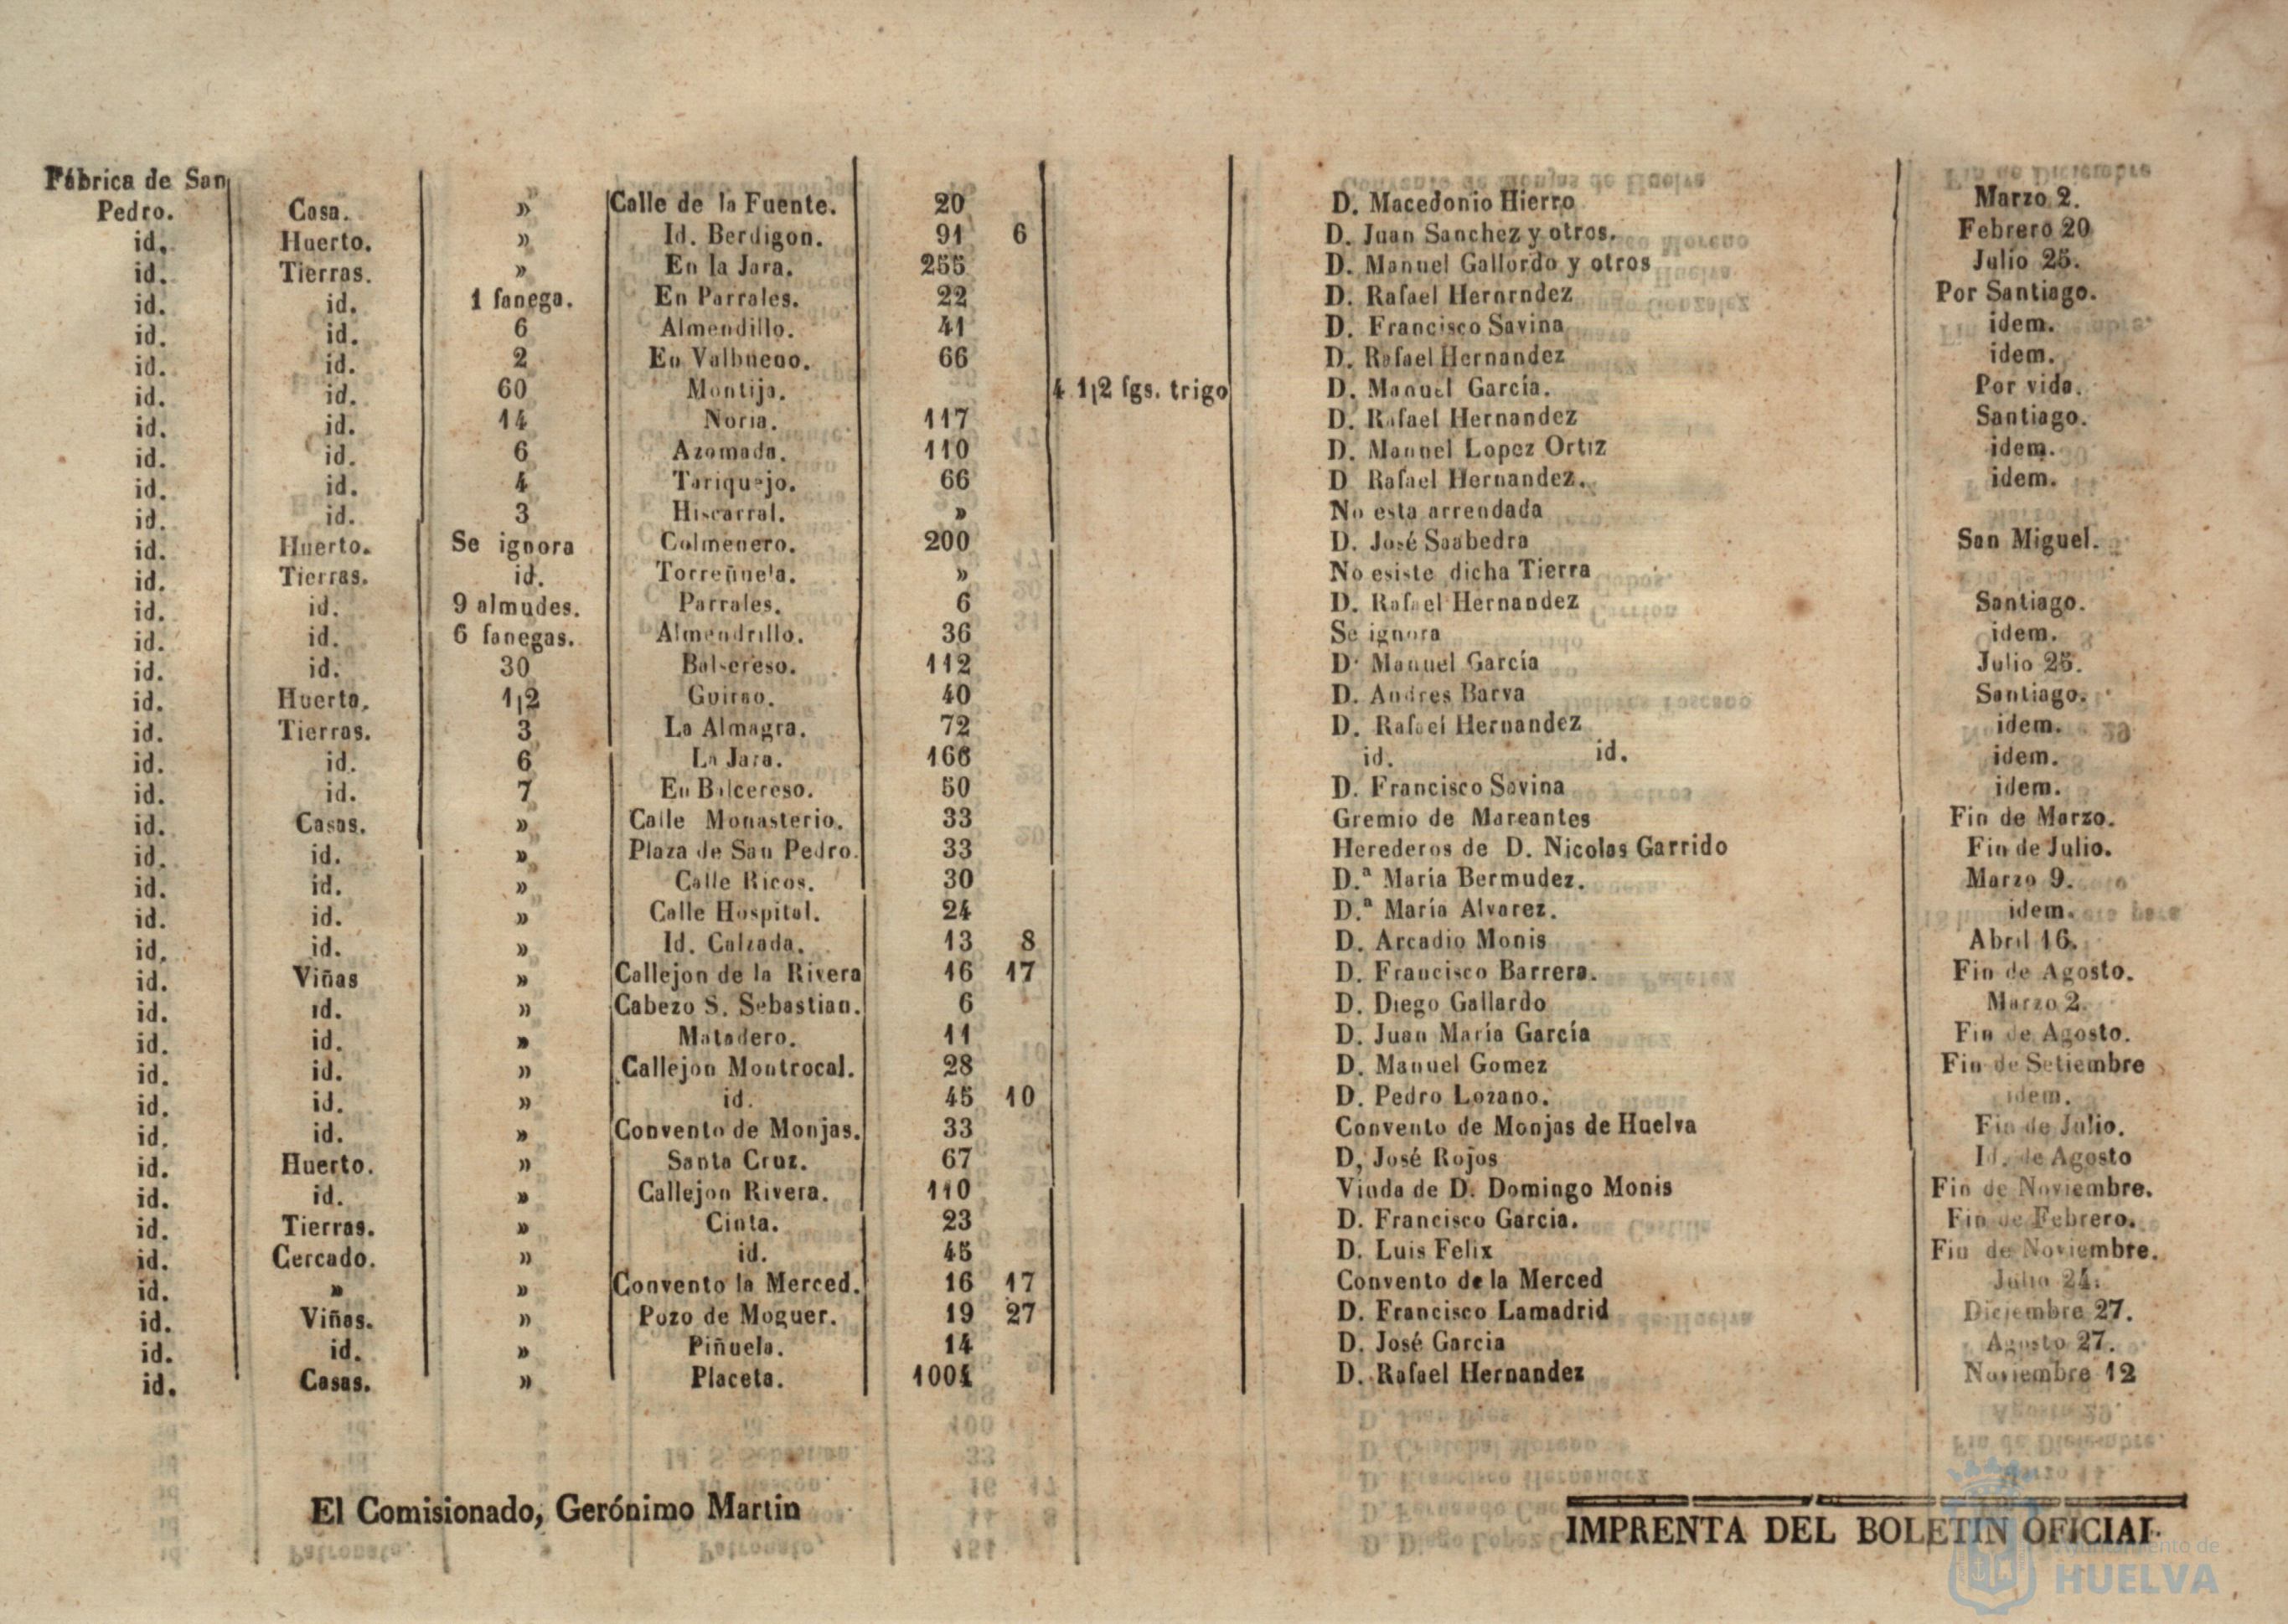 Fábrica de San
Pedro. Casa. » Calle de la Fuente. 20 D. Macedonio Hierro Marzo 2.
id. Huerto. » Id. Berdigon. 91 6 D. Juan Sanchez y otros. Febrero 20
id. Tierras. » En la Jara. 255 D. Manuel Gallordo y otros Julio 25.
id. id. 1 fanega. En Parrales. 22 D. Rafael Hernrndez Por Santiago.
id. id. 6 Almendillo. 41 D. Francisco Savina idem.
id. id. 2 En Valbueno. 66 D. Rafael Hernandez idem.
id. id. 60 Montija. 4 1|2 fgs. trigo D. Manuel García. Por vida.
id. id. 14 Noria. 117 D. Rafael Hernandez Santiago.
id. id. 6 Azomada. 110 D. Manuel Lopez Ortiz idem.
id. id. 4 Tariquejo. 66 D Rafael Hernandez. idem.
id. id. 3 Hiscarral. » No esta arrendada
id. Huerto. Se ignora Colmenero. 200 D. José Saabedra San Miguel.
id. Tierras. id. Torreñuela. » No esiste dicha Tierra
id. id. 9 almudes. Parrales. 6 D. Rafael Hernandez Santiago.
id. id. 6 fanegas. Almendrillo. 36 Se ignora idem.
id. id. 30 Balsereso. 112 D. Manuel García Julio 25.
id. Huerto. 1|2 Guirao. 40 D. Andres Barva Santiago.
id. Tierras. 3 La Almagra. 72 D. Rafael Hernandez idem.
id. id. 6 La Jara. 166 id. id. idem.
id. id. 7 En Balcereso. 50 D. Francisco Savina idem.
id. Casas. » Calle Monasterio. 33 Gremio de Mareantes Fin de Marzo.
id. id. » Plaza de San Pedro. 33 Herederos de D. Nicolas Garrido Fin de Julio.
id. id. » Calle Ricos. 30 D.ª María Bermudez. Marzo 9.
id. id. » Calle Hospital. 24 D.ª María Alvarez. idem.
id. id. » Id. Calzada. 13 8 D. Arcadio Monis Abril 16.
id. Viñas » Callejon de la Rivera 16 17 D. Francisco Barrera. Fin de Agosto.
id. id. » Cabezo S. Sebastian. 6 D. Diego Gallardo Marzo 2.
id. id. » Matadero. 11 D. Juan María García Fin de Agosto.
id. id. » Callejon Montrocal. 28 D. Manuel Gomez Fin de Setiembre
id. id. » id. 45 10 D. Pedro Lozano. idem.
id. id. » Convento de Monjas. 33 Convento de Monjas de Huelva Fin de Julio.
id. Huerto. » Santa Cruz. 67 D, José Rojos Id. de Agosto
id. id. » Callejon Rivera. 110 Viuda de D. Domingo Monis Fin de Noviembre.
id. Tierras. » Cinta. 23 D. Francisco Garcia. Fin de Febrero.
id. Cercado. » id. 45 D. Luis Felix Fin de Noviembre.
id. » » Convento la Merced. 16 17 Convento de la Merced Julio 24.
id. Viñas. » Pozo de Moguer. 19 27 D. Francisco Lamadrid Diciembre 27.
id. id. » Piñuela. 14 D. José Garcia Agosto 27.
id. Casas. » Placeta. 1004 D. Rafael Hernandez Noviembre 12
El Comisionado, Gerónimo Martin
IMPRENTA DEL BOLETIN OFICIAL
Ayuntamiento de
HUELVA